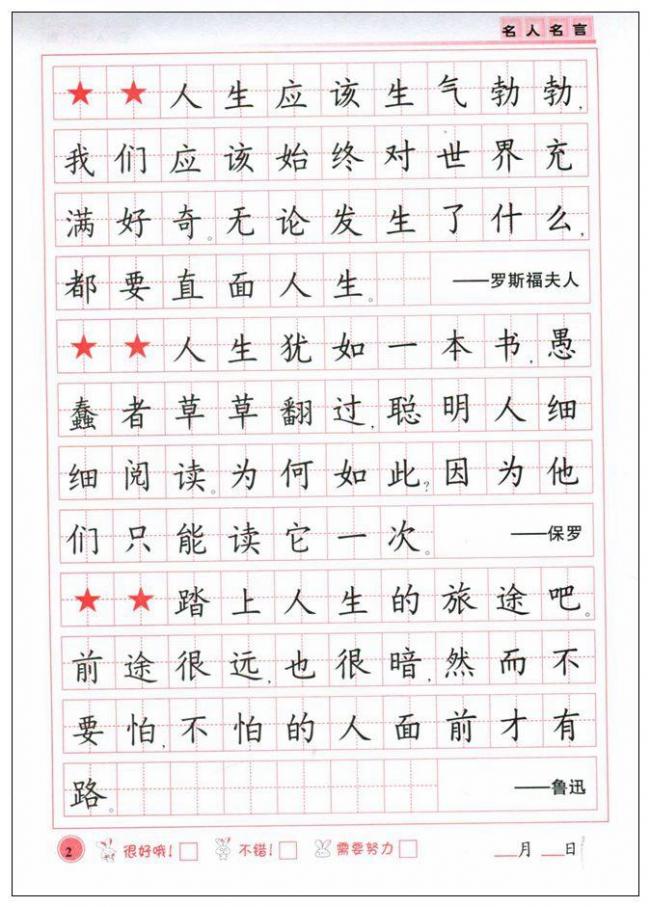 名人名言
★ ★ 人生应该生气勃勃，
我们应该始终对世界充
满好奇。无论发生了什么，
都要直面人生。 ——罗斯福夫人
★ ★ 人生犹如一本书，愚
蠢者草草翻过，聪明人细
细阅读。为何如此？因为他
们只能读它一次。 ——保罗
★ ★ 踏上人生的旅途吧。
前途很远，也很暗，然而不
要怕，不怕的人面前才有
路。 ——鲁迅
2 很好哦！□ 不错！□ 需要努力□ __月__日